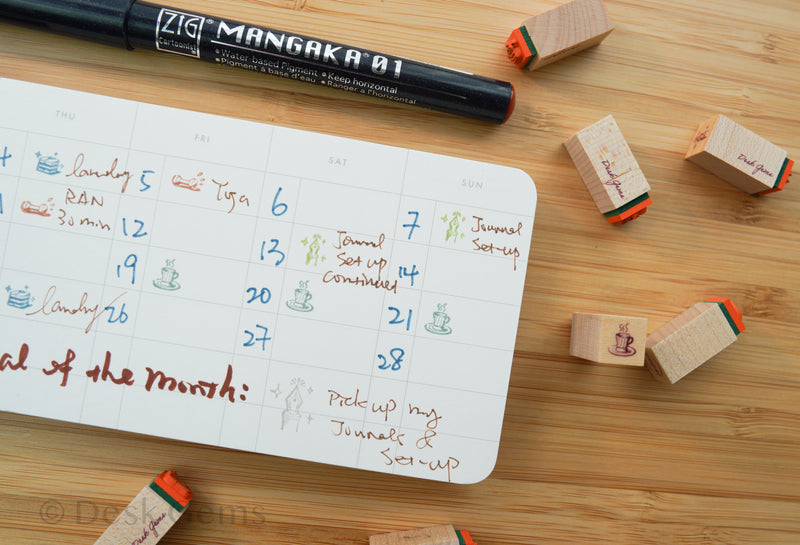 ZIG
Cartoonist
MANGAKA 01
• Water-based Pigment • Keep horizontal
• Pigment à base d'eau • Ranger a l'horizontal
THU
FRI
SAT
SUN
4
landry
5
Yoga
6
7
Journal
Set-up
RAN
30 min
12
13
Journal
Set up
continued
14
19
20
21
landry
26
27
28
al of the month:
Pick up my
Journals &
Set-up
Desk Gems
Desk Gems
Desk Gems
© Desk Gems